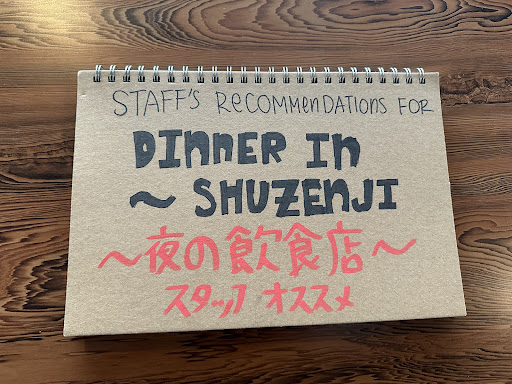 STAFF'S RECOMMENDATIONS FOR
DINNER IN
~ SHUZENJI
～夜の飲食店～
スタッフ オススメ